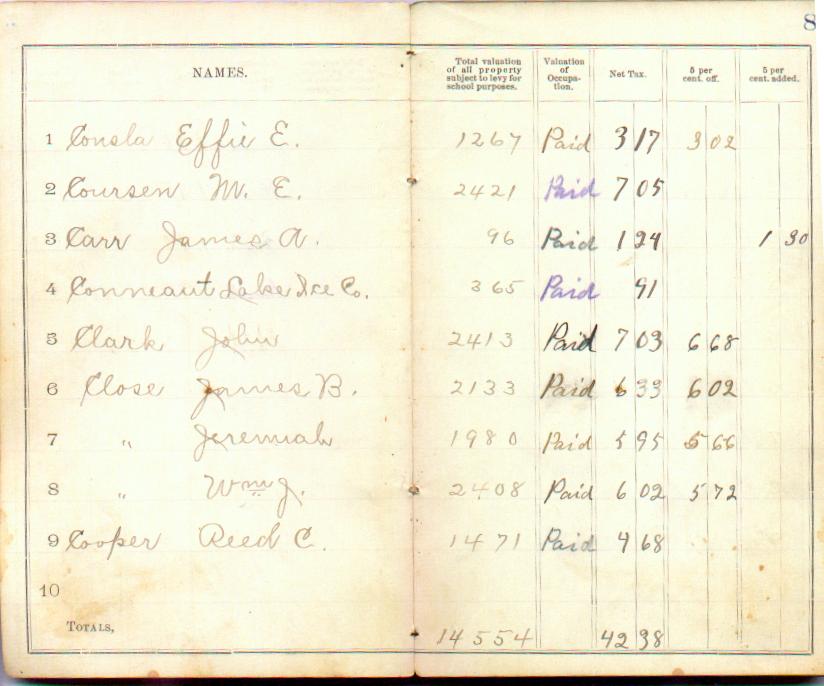 8
NAMES. Total valuation of all property subject to levy for school purposes. Valuation of Occupa- tion. Net Tax. 5 per cent. off. 5 per cent. added.
1 Consla Effie E. 1267 Paid 3 17 3 02
2 Coursen M. E. 2421 Paid 7 05
3 Carr James A. 96 Paid 1 24 1 30
4 Conneaut Lake Ice Co. 365 Paid 91
5 Clark John 2413 Paid 7 03 6 68
6 Close James B. 2133 Paid 6 33 6 02
7 " Jeremiah 1980 Paid 5 95 5 66
8 " Wm J. 2408 Paid 6 02 5 72
9 Cooper Reed C. 1471 Paid 4 68
10
TOTALS, 14 554 42 38